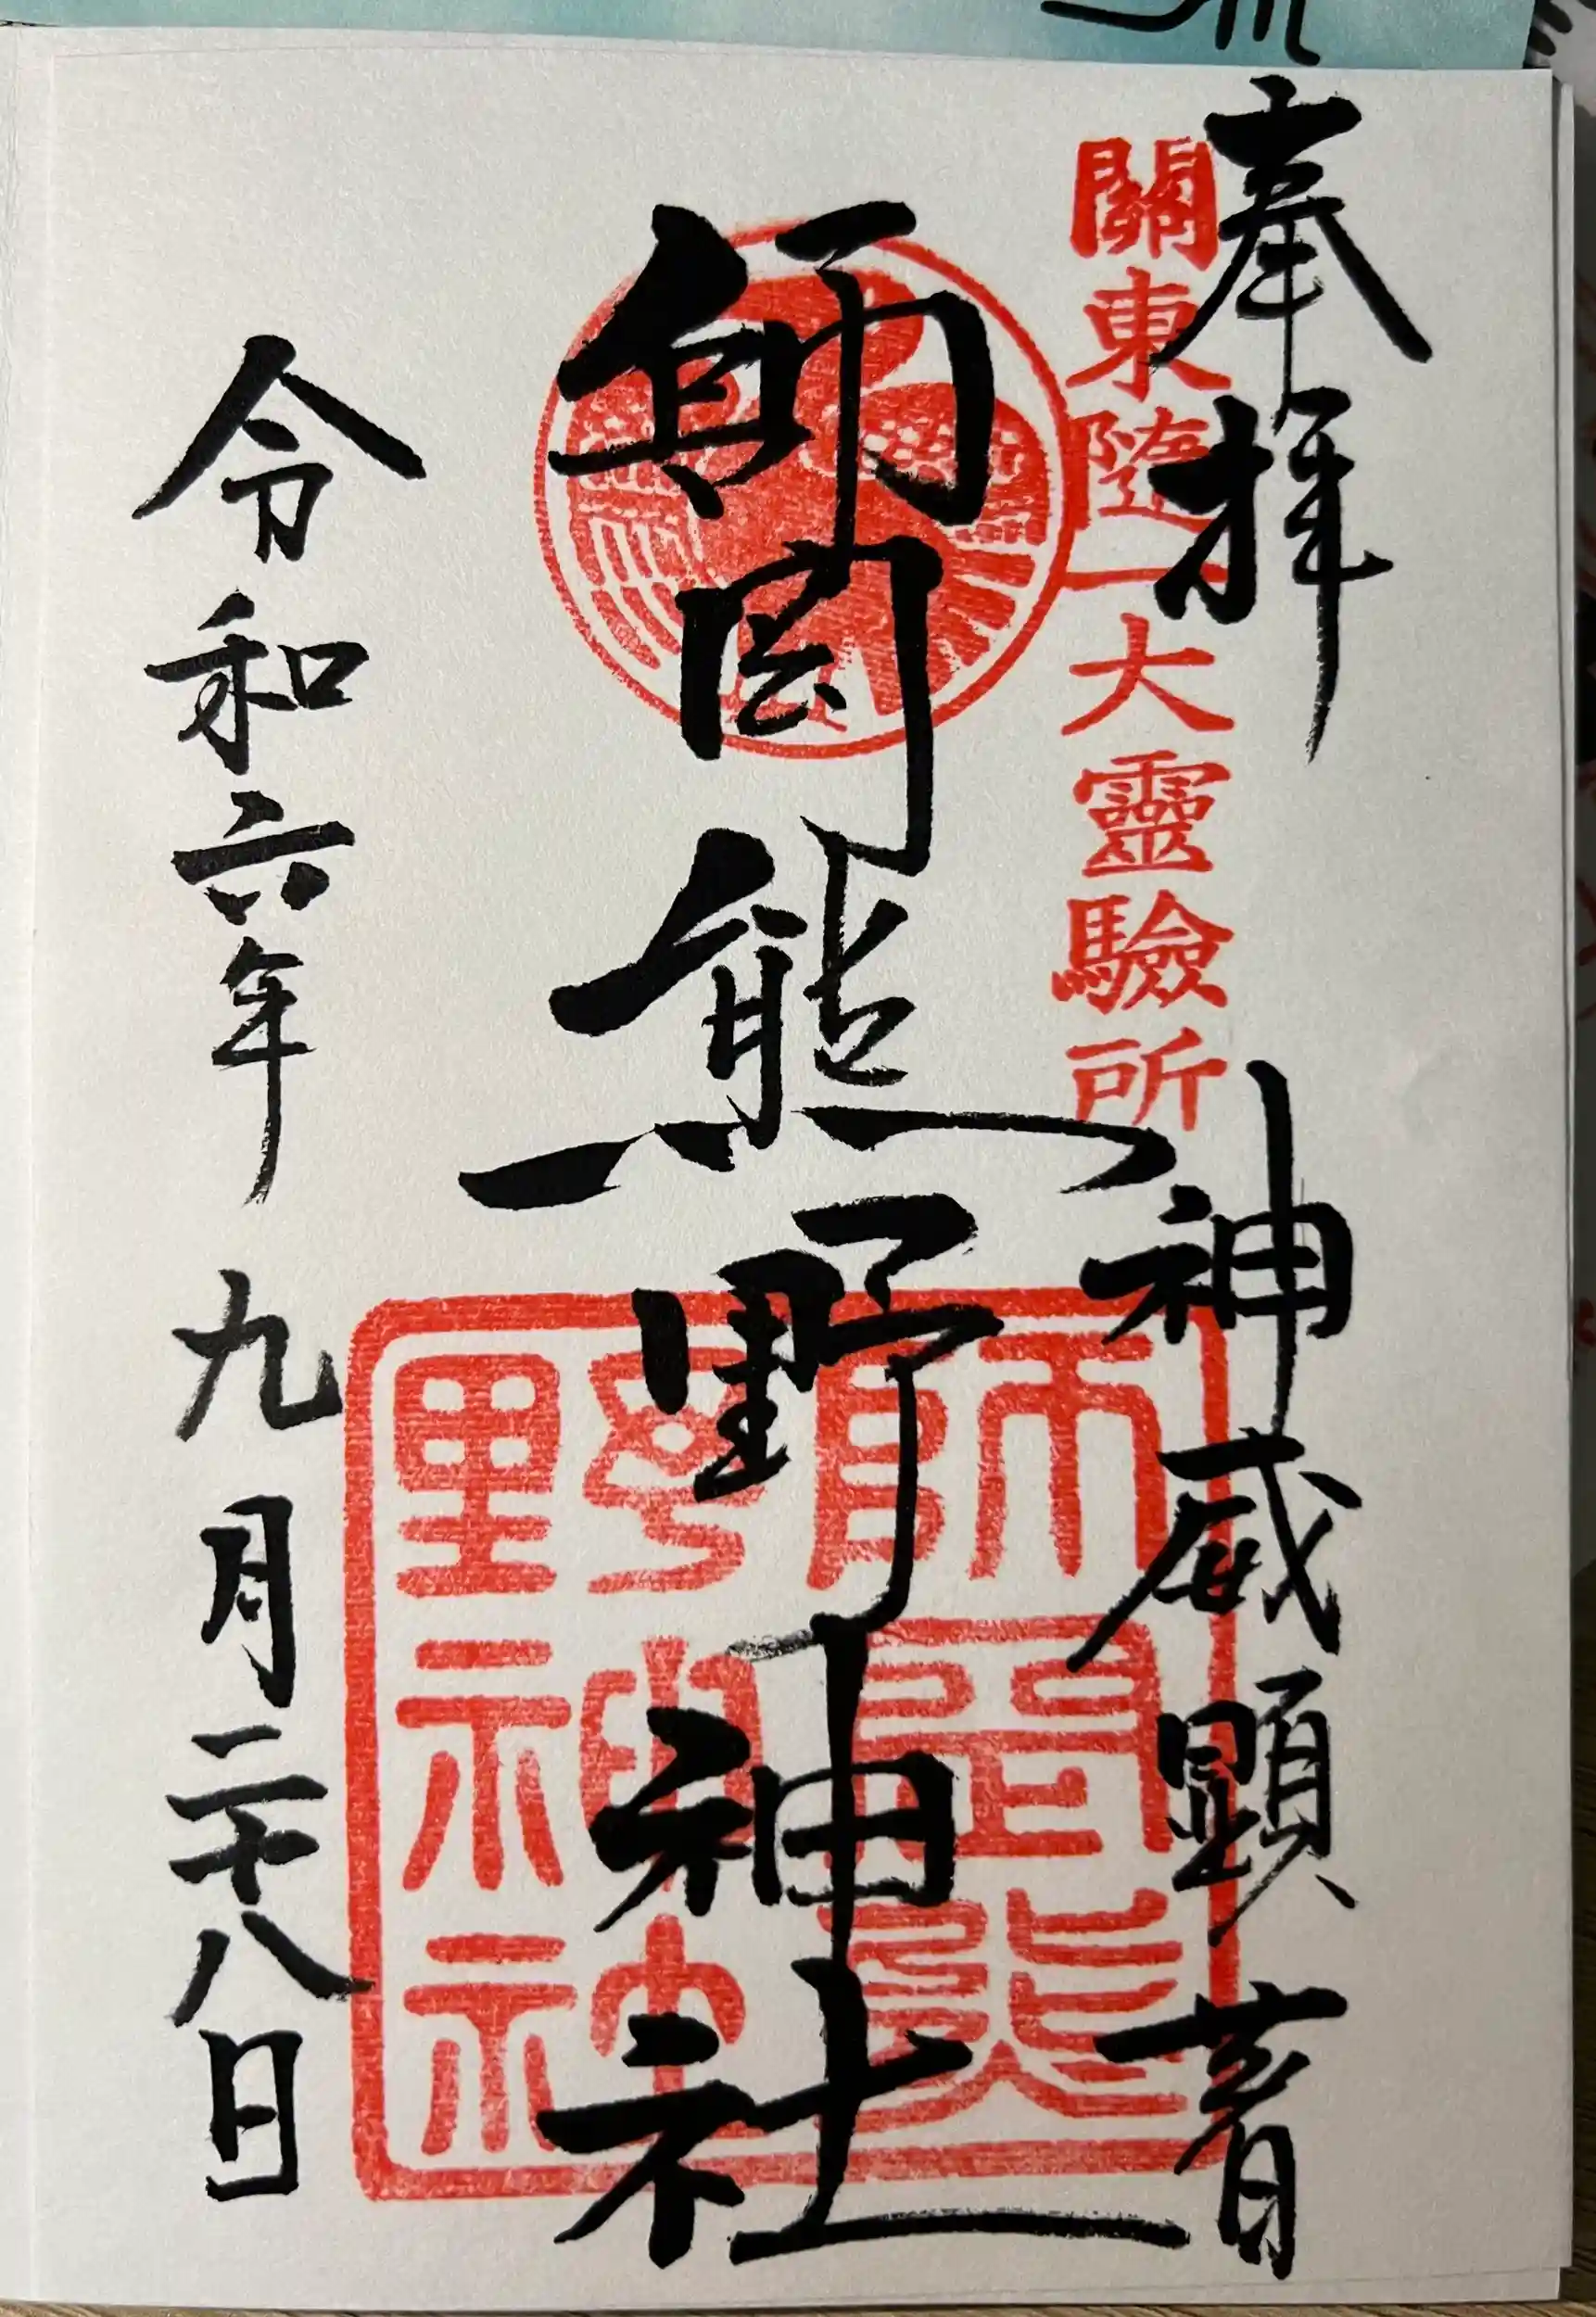 奉拝
關東隨一大靈驗所
神威顕著
師岡熊野神社
師岡熊
野神社
令和六年九月二十八日